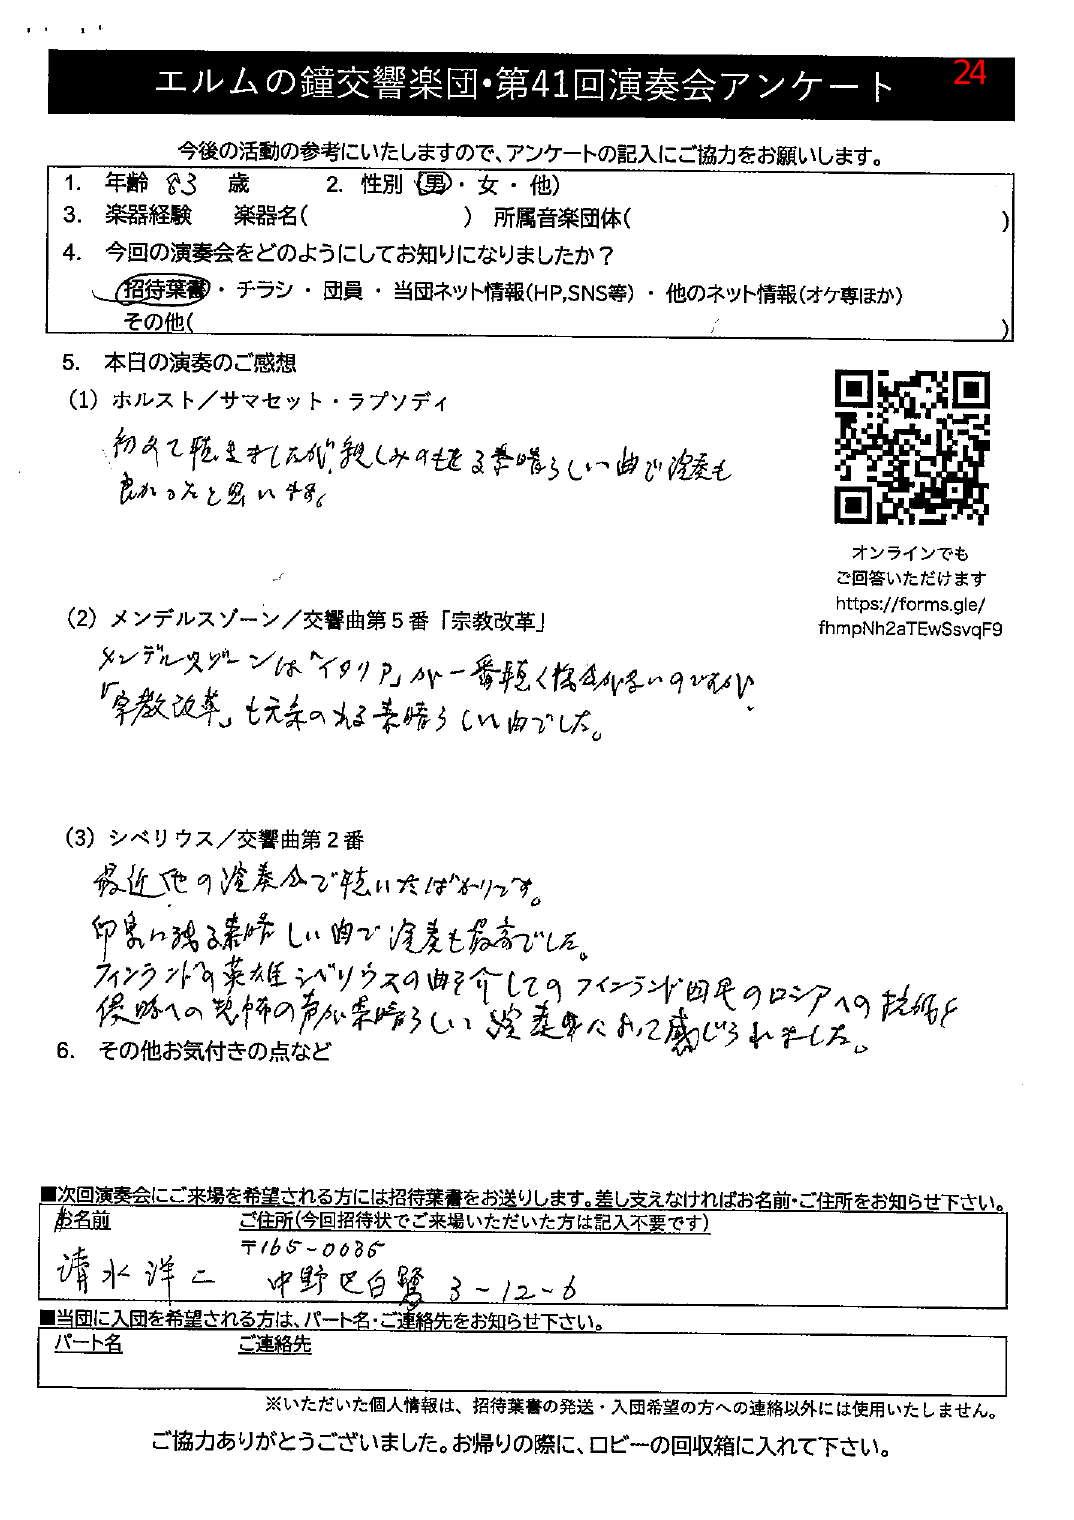 24
エルムの鐘交響楽団・第41回演奏会アンケート
今後の活動の参考にいたしますので、アンケートの記入にご協力をお願いします。
1. 年齢 83 歳 2. 性別(男・女・他)
3. 楽器経験 楽器名( ) 所属音楽団体( )
4. 今回の演奏会をどのようにしてお知りになりましたか？
招待葉書・チラシ・団員・当団ネット情報(HP,SNS等)・他のネット情報(オケ専ほか)
その他( )
5. 本日の演奏のご感想
(1) ホルスト／サマセット・ラプソディ
初めて聴きましたが、親しみのもてる素晴らしい曲で演奏も
良かったと思います。
オンラインでも
ご回答いただけます
https://forms.gle/
fhmpNh2aTEwSsvqF9
(2) メンデルスゾーン／交響曲第５番「宗教改革」
メンデルスゾーンは「イタリア」が一番聴く機会が多いのですが、
「宗教改革」も元気の出る素晴らしい曲でした。
(3) シベリウス／交響曲第２番
最近他の演奏会で聴いたばかりです。
印象に残る素晴しい曲で演奏も最高でした。
フィンランドの英雄シベリウスの曲を介してのフィンランド国民のロシアへの抵抗と
侵略への恐怖の声が素晴らしい演奏によって感じられました。
6. その他お気付きの点など
■次回演奏会にご来場を希望される方には招待葉書をお送りします。差し支えなければお名前・ご住所をお知らせ下さい。
お名前 ご住所(今回招待状でご来場いただいた方は記入不要です)
〒165-0035
清水洋二 中野区白鷺 3-12-6
■当団に入団を希望される方は、パート名・ご連絡先をお知らせ下さい。
パート名 ご連絡先
※いただいた個人情報は、招待葉書の発送・入団希望の方への連絡以外には使用いたしません。
ご協力ありがとうございました。お帰りの際に、ロビーの回収箱に入れて下さい。